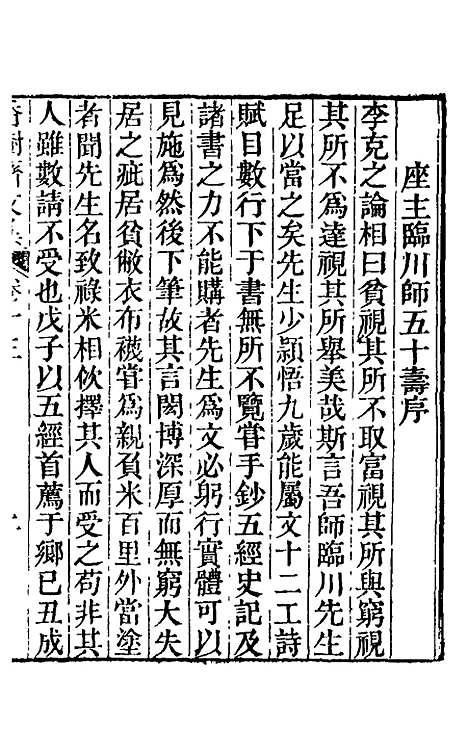 座主臨川師五十壽序
李克之論相曰貧視其所不取富視其所與窮視
其所不為達視其所舉美哉斯言吾師臨川先生
足以當之矣先生少穎悟九歲能屬文十二工詩
賦目數行下于書無所不覽嘗手鈔五經史記及
諸書之力不能購者先生為文必躬行實體可以
見施為然後下筆故其言閎博深厚而無窮大失
居之疵居貧敝衣布襪嘗為親負米百里外當塗
者聞先生名致祿米相佽擇其人而受之苟非其
人雖數請不受也戊子以五經首薦于鄉已丑成
香樹齋文集 卷十三